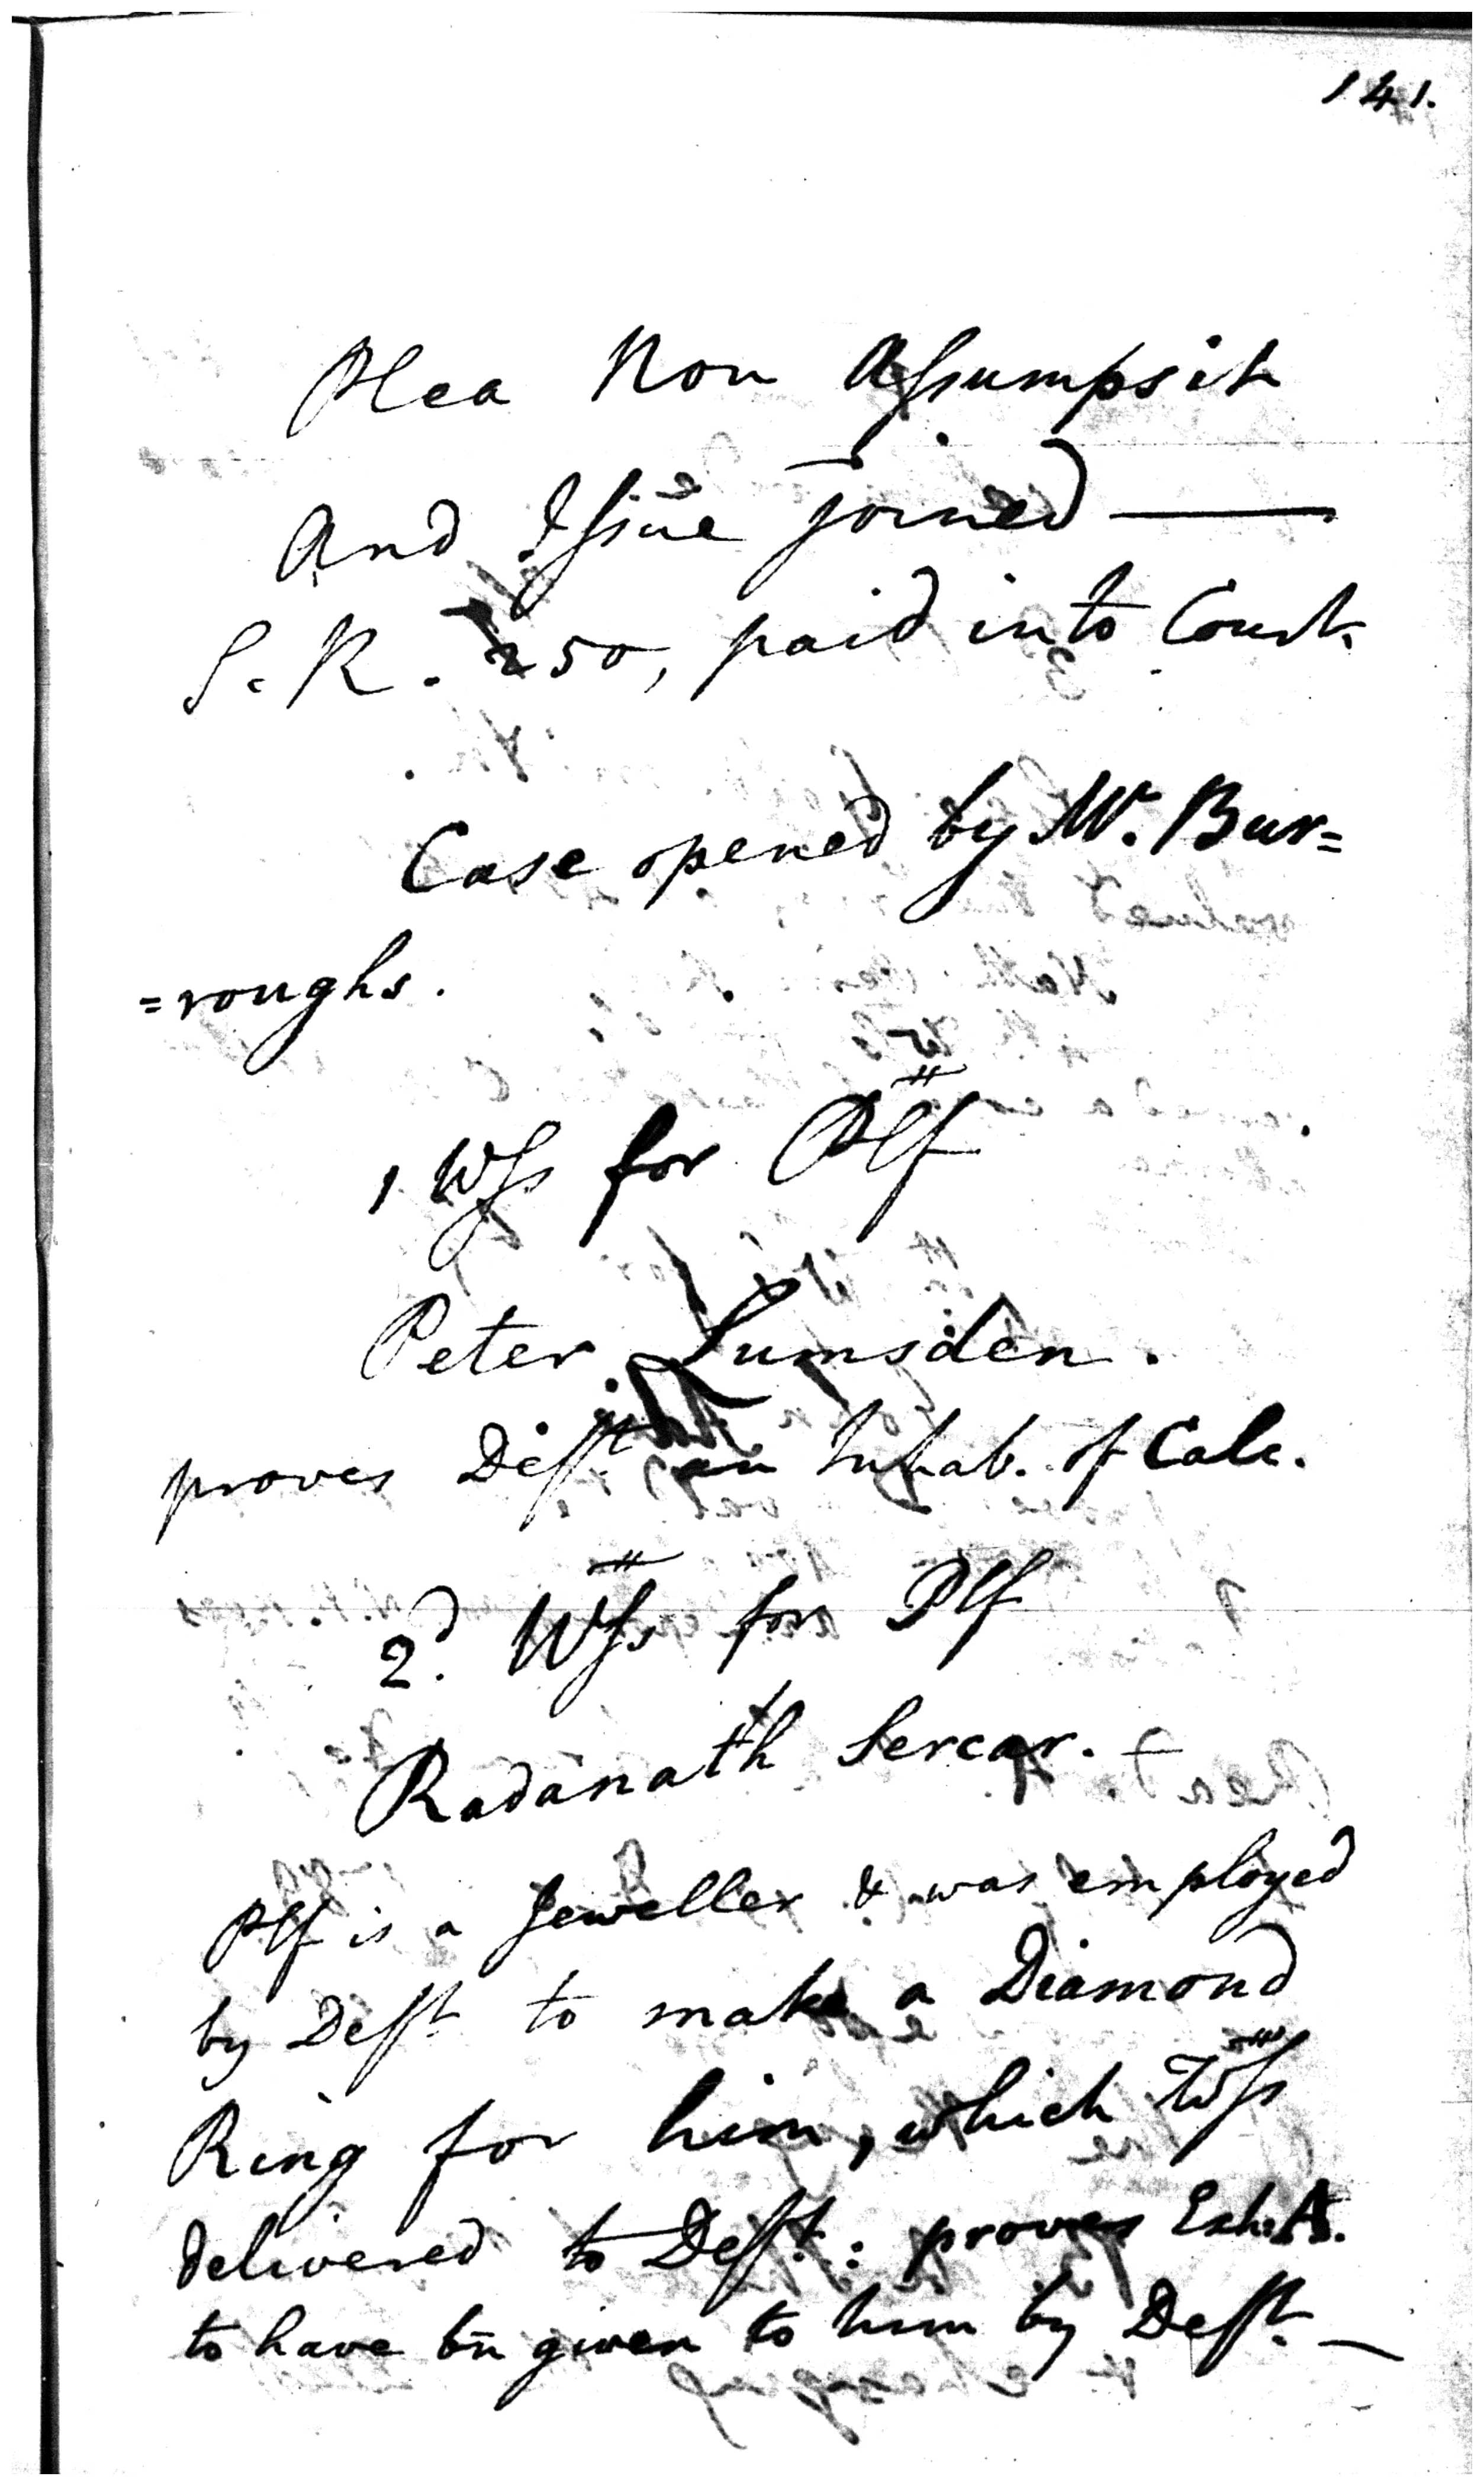 141.
Plea Non Assumpsit
And Issue joined —
S. R. 250, paid into Court.
Case opened by Mr. Bur=
=roughs.
1 Wss for Plf
Peter Lumsden.
proves Deft an Inhab. of Calc.
2d. Wss for Plf
Radanath Sercar. —
Plf is a Jeweller & was employed
by Deft to make a Diamond
Ring for him, which Wss
delivered to Deft: proves Exh. A.
to have bn given to him by Deft. —